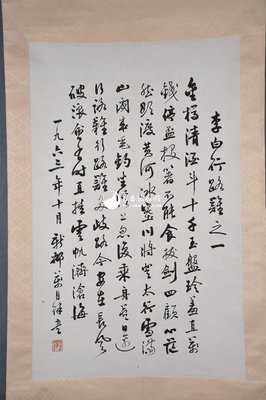 李白行路難之一
金樽清酒斗十千玉盤珍羞直萬
錢停盃投箸不能食拔劍四顧心茫
然欲渡黃河冰塞川將登太行雪滿
山閑來垂釣坐溪上忽復乘舟夢日邊
行路難行路難多歧路今安在長風
破浪會有時直掛雲帆濟滄海
一九六三年十月新都